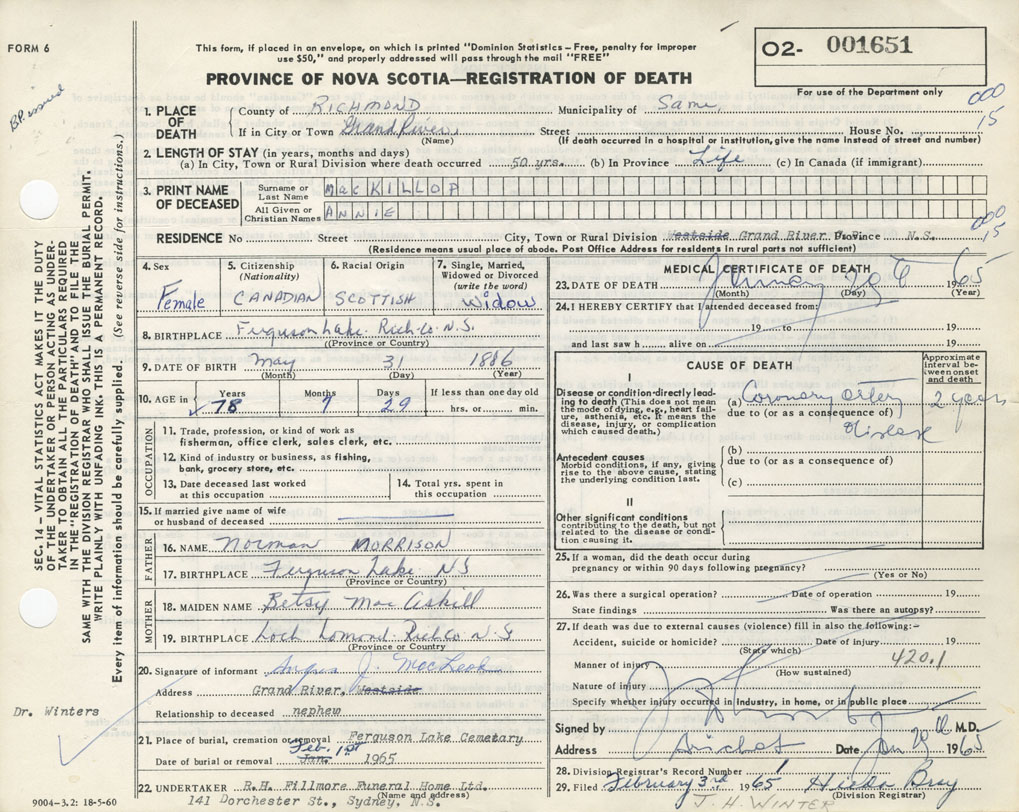 FORM 6
B.P. issued
This form, if placed in an envelope, on which is printed "Dominion Statistics – Free, penalty for improper
use $50," and properly addressed will pass through the mail "FREE"
PROVINCE OF NOVA SCOTIA—REGISTRATION OF DEATH
O2- 001651
For use of the Department only
000
15
1. PLACE OF DEATH
County of RICHMOND Municipality of Same
If in City or Town Grand River Street House No.
(Name) (If death occurred in a hospital or institution, give the name instead of street and number)
2. LENGTH OF STAY (in years, months and days)
(a) In City, Town or Rural Division where death occurred 50 yrs. (b) In Province Life (c) In Canada (if immigrant)
3. PRINT NAME OF DECEASED
Surname or Last Name MacKILLOP
All Given or Christian Names ANNIE
000
15
RESIDENCE No Street City, Town or Rural Division Westside Grand River Province N.S.
(Residence means usual place of abode. Post Office Address for residents in rural parts not sufficient)
4. Sex
Female
5. Citizenship
(Nationality)
CANADIAN
6. Racial Origin
SCOTTISH
7. Single, Married,
Widowed or Divorced
(write the word)
Widow
8. BIRTHPLACE Ferguson Lake Rich. Co. N.S.
(Province or Country)
9. DATE OF BIRTH May 31 1886
(Month) (Day) (Year)
10. AGE in Years Months Days If less than one day old
78 7 29 hrs. or min.
OCCUPATION
11. Trade, profession, or kind of work as
fisherman, office clerk, sales clerk, etc.
12. Kind of industry or business, as fishing,
bank, grocery store, etc.
13. Date deceased last worked
at this occupation
14. Total yrs. spent in
this occupation
15. If married give name of wife
or husband of deceased
FATHER
16. NAME Norman MORRISON
17. BIRTHPLACE Ferguson Lake NS
(Province or Country)
MOTHER
18. MAIDEN NAME Betsy MacAskill
19. BIRTHPLACE Loch Lomond Rich Co N S
(Province or Country)
20. Signature of informant Angus J. MacLeod
Address Grand River, Westside
Relationship to deceased nephew
21. Place of burial, cremation or removal Ferguson Lake Cemetary
Feb. 1st
Date of burial or removal Jan. 1965
22. UNDERTAKER R.H. Fillmore Funeral Home Ltd.
(Name and address)
141 Dorchester St., Sydney, N.S.
MEDICAL CERTIFICATE OF DEATH
23. DATE OF DEATH January 1965
(Month) (Day) (Year)
24. I HEREBY CERTIFY that I attended deceased from:
19 to 19
and last saw h alive on 19
CAUSE OF DEATH
Approximate
interval be-
tween onset
and death
I
Disease or condition directly lead-
ing to death (This does not mean
the mode of dying, e.g., heart fail-
ure, asthenia, etc. It means the
disease, injury, or complication
which caused death.)
(a) Coronary artery 2 years
due to (or as a consequence of)
disease
Antecedent causes
Morbid conditions, if any, giving
rise to the above cause, stating
the underlying condition last.
(b)
due to (or as a consequence of)
(c)
II
Other significant conditions
contributing to the death, but not
related to the disease or condi-
tion causing it.
25. If a woman, did the death occur during
pregnancy or within 90 days following pregnancy?
(Yes or No)
26. Was there a surgical operation? Date of operation 19
State findings Was there an autopsy?
27. If death was due to external causes (violence) fill in also the following:-
Accident, suicide or homicide? Date of injury 19
(State which)
Manner of injury 420.1
(How sustained)
Nature of injury
Specify whether injury occurred in industry, in home, or in public place
Signed by M.D.
Address Arichat Date Jan 1965
28. Division Registrar's Record Number 1
29. Filed February 3rd 1965 Hilda Bray
(Division Registrar)
J. H. WINTER
SEC. 14 – VITAL STATISTICS ACT MAKES IT THE DUTY
OF THE UNDERTAKER OR PERSON ACTING AS UNDER-
TAKER TO OBTAIN ALL THE PARTICULARS REQUIRED
IN THE "REGISTRATION OF DEATH" AND TO FILE THE
SAME WITH THE DIVISION REGISTRAR WHO SHALL ISSUE THE BURIAL PERMIT.
WRITE PLAINLY WITH UNFADING INK. THIS IS A PERMANENT RECORD.
Every item of information should be carefully supplied. (See reverse side for instructions.)
Dr. Winters
9004–3.2: 18-5-60